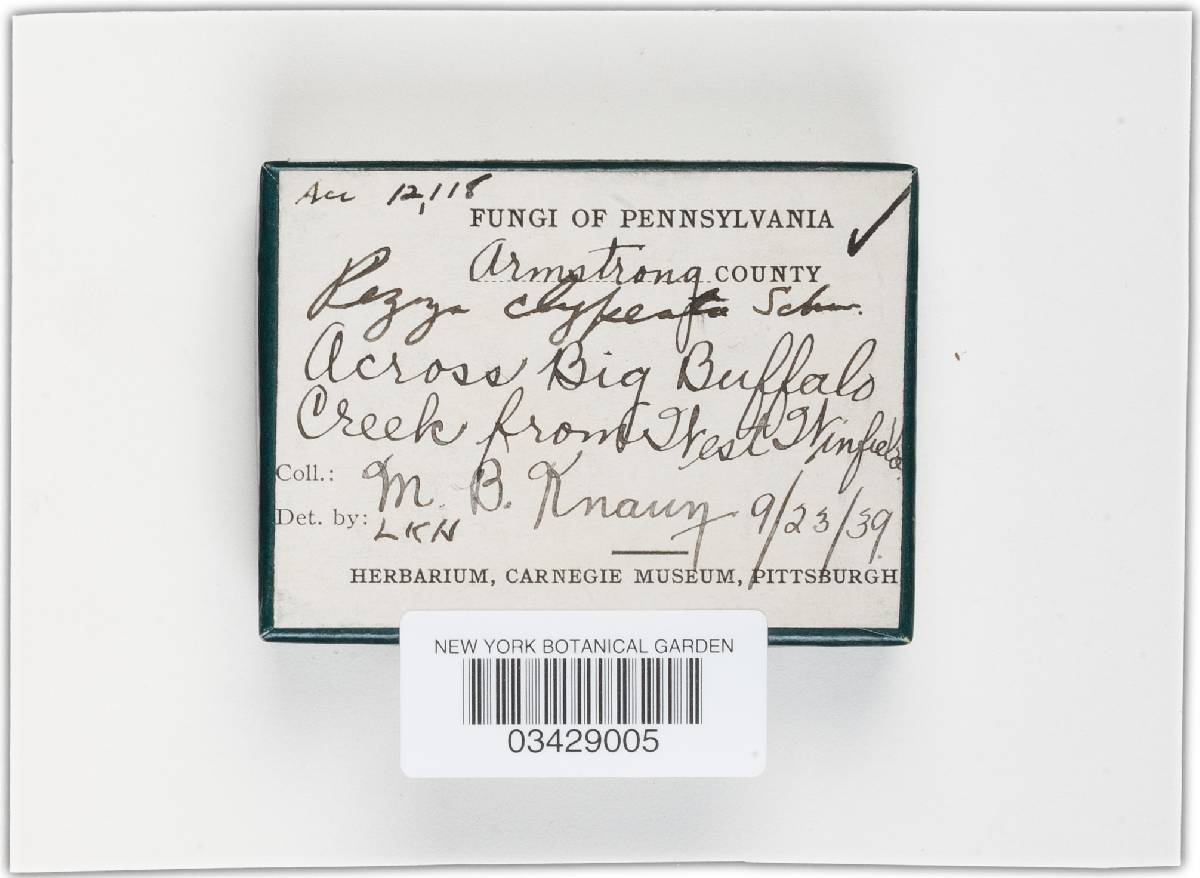 Acc 12,118
FUNGI OF PENNSYLVANIA
Armstrong COUNTY
Peziza clypeata Schw.
Across Big Buffalo
Creek from West Winfield.
Coll.: M. B. Knauz 9/23/39.
Det. by: LKH
HERBARIUM, CARNEGIE MUSEUM, PITTSBURGH
NEW YORK BOTANICAL GARDEN
03429005